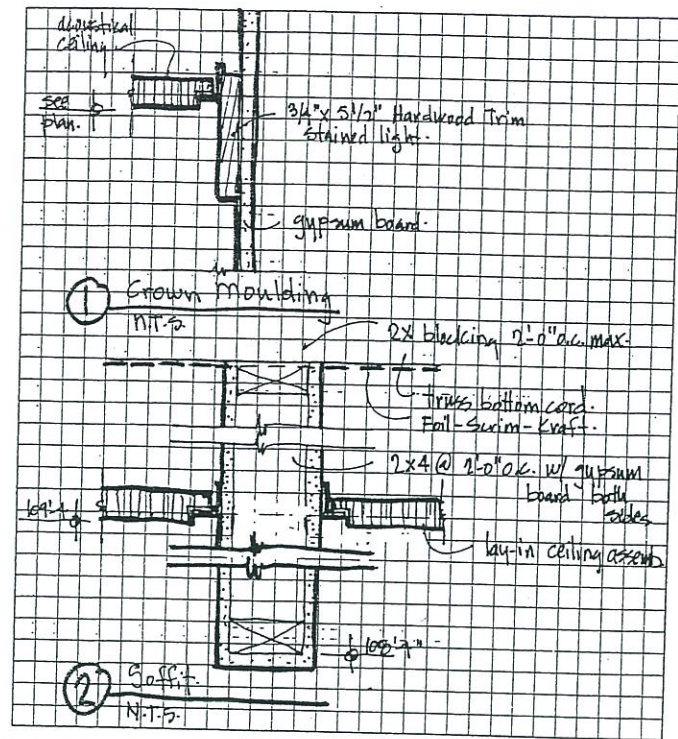 acoustical
ceiling
see
plan.
3/4" x 5 1/2" Hardwood Trim
Stained light.
gypsum board.
1 Crown Moulding
N.T.S.
2x blocking 2'-0" o.c. max.
truss bottom cord.
Foil-Scrim-Kraft.
2x4 @ 2'-0" o.c. w/ gypsum
board both
sides
109'-4
lay-in ceiling assemb
2 Soffit.
N.T.S.